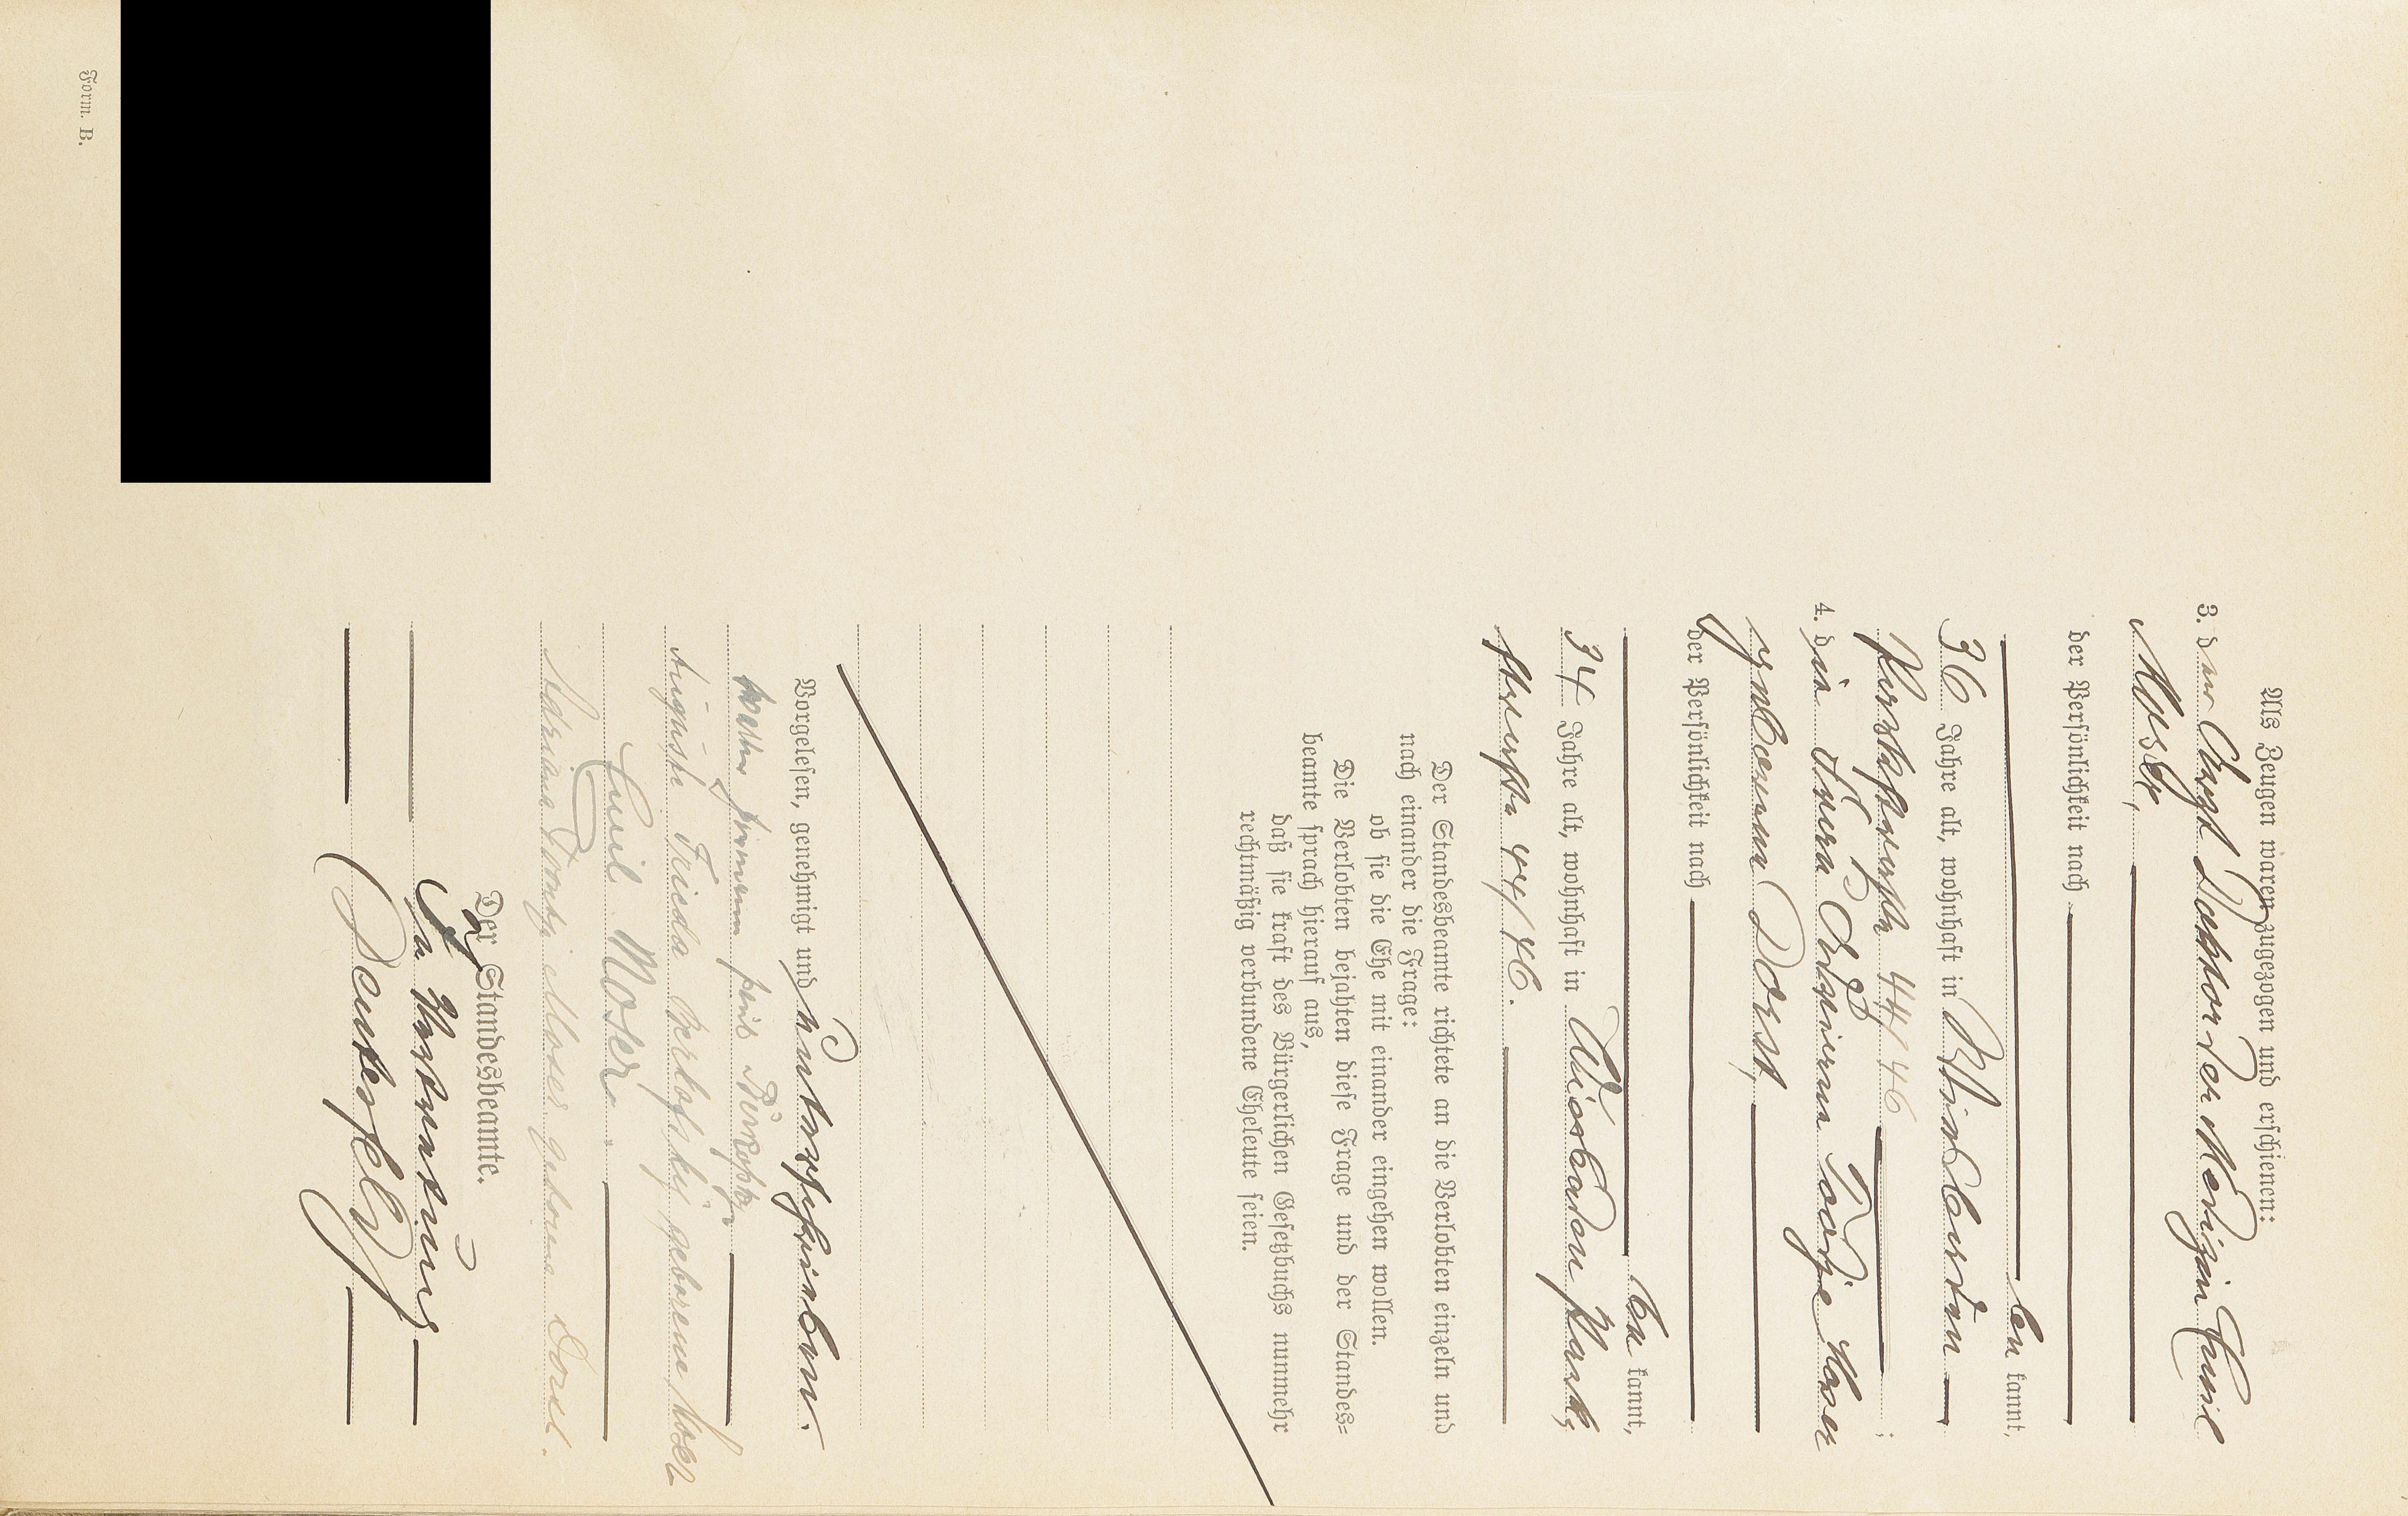 Als Zeugen waren zugezogen und erschienen:
3. der Arzt Doktor der Medizin Emil
Moser,
der Persönlichkeit nach
be kannt,
36 Jahre alt, wohnhaft in Wiesbaden
Marktstraße 44/46;
4. die Frau Adriana Moser
geborene Dorst,
der Persönlichkeit nach
be kannt,
34 Jahre alt, wohnhaft in Wiesbaden
straße 44/46.
Der Standesbeamte richtete an die Verlobten einzeln und
nach einander die Frage:
ob sie die Ehe mit einander eingehen wollen.
Die Verlobten bejahten diese Frage und der Standes=
beamte sprach hierauf aus,
daß sie kraft des Bürgerlichen Gesetzbuchs nunmehr
rechtmäßig verbundene Eheleute seien.
Vorgelesen, genehmigt und unterschrieben.
Walther Hermann
Auguste Frieda geborene
Emil Moser.
Adriana Moser geborene Dorst.
Der Standesbeamte.
In Vertretung
Form. B.